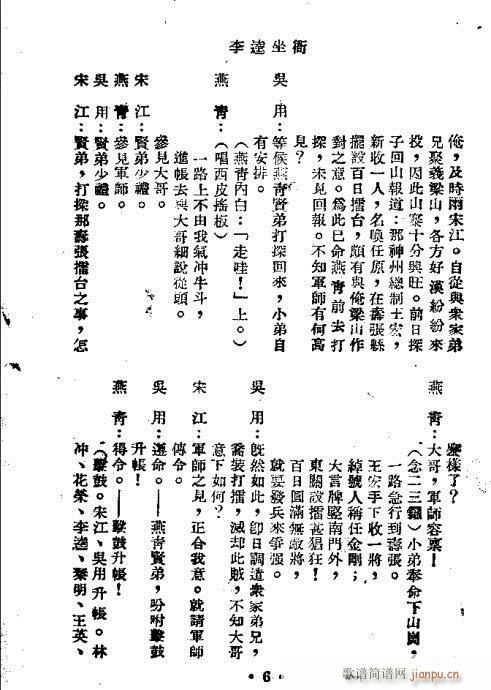 李逵坐衙
俺，及時雨宋江。自從與衆家弟
兄聚義梁山，各方好漢紛紛來
投，因此山寨十分興旺。前日探
子回山報道：那神州總制王宏，
新收一人，名喚任原，在壽張縣
擺設百日擂台，頗有與俺梁山作
對之意。爲此已命燕青前去打
探，未見回報。不知軍師有何高
見？
吳用：等候燕青賢弟打探回來，小弟自
有安排。
（燕青內白：「走哇！」上。）
燕青：（唱西皮搖板）
一路上不由我氣冲牛斗，
進帳去與大哥細說從頭。
參見大哥。
宋江：賢弟少禮。
燕青：參見軍師。
吳用：賢弟少禮。
宋江：賢弟，打探那壽張擂台之事，怎
麼樣了？
燕青：大哥，軍師容稟！
（念二三鑼）小弟奉命下山崗，
一路急行到壽張。
王宏手下收一將，
綽號人稱任金剛；
大言牌竪南門外，
東關設擂甚猖狂！
百日圓滿無敵將，
就要發兵來爭强。
吳用：旣然如此，卽日調道衆家弟兄，
喬裝打擂，滅却此賊，不知大哥
意下如何？
宋江：軍師之見，正合我意。就請軍師
傳令。
吳用：遵命。——燕青賢弟，吩咐擊鼓
升帳！
燕青：得令。——擊鼓升帳！
（擊鼓。宋江、吳用升帳。林
冲、花榮、李逵、秦明、王英、
·6·
歌谱简谱网
jianpu.cn